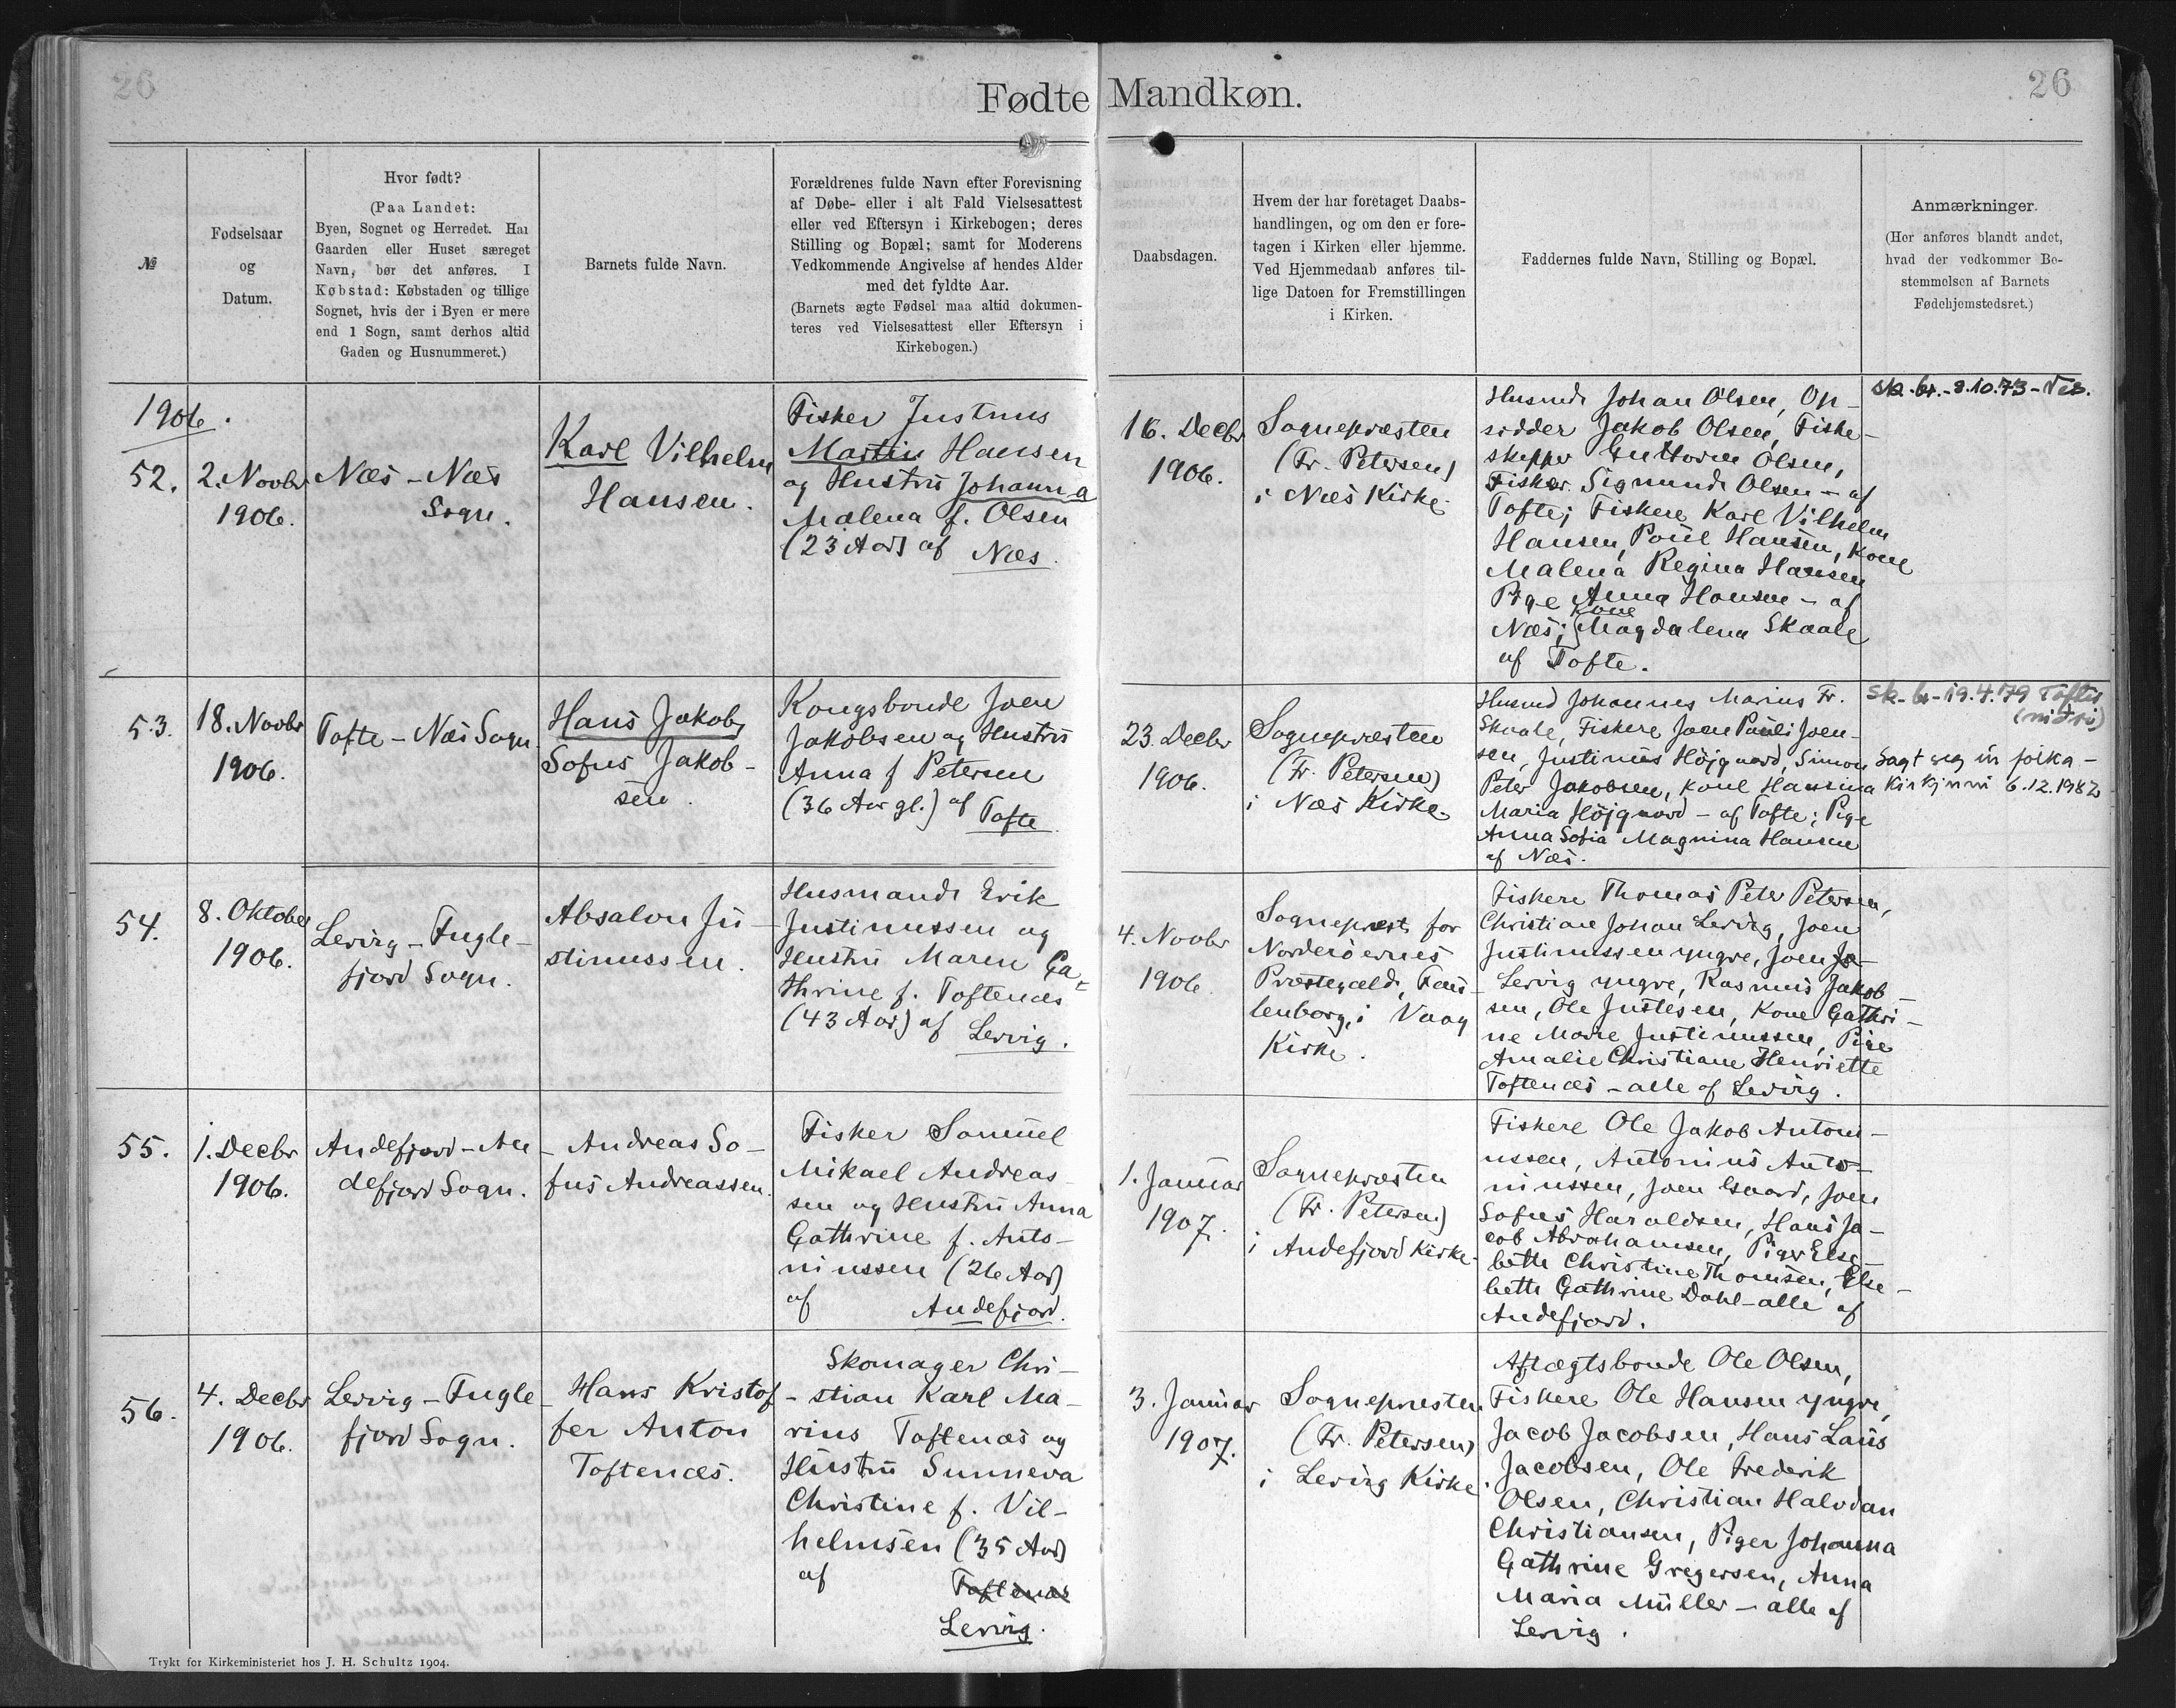 26
Fødte Mandkøn.
26
№
Fødselsaar
og
Datum.
Hvor født?
(Paa Landet:
Byen, Sognet og Herredet. Har
Gaarden eller Huset særeget
Navn, bør det anføres. I
Købstad: Købstaden og tillige
Sognet, hvis der i Byen er mere
end 1 Sogn, samt derhos altid
Gaden og Husnummeret.)
Barnets fulde Navn.
Forældrenes fulde Navn efter Forevisning
af Døbe- eller i alt Fald Vielsesattest
eller ved Eftersyn i Kirkebogen; deres
Stilling og Bopæl; samt for Moderens
Vedkommende Angivelse af hendes Alder
med det fyldte Aar.
(Barnets ægte Fødsel maa altid dokumen-
teres ved Vielsesattest eller Eftersyn i
Kirkebogen.)
Daabsdagen.
Hvem der har foretaget Daabs-
handlingen, og om den er fore-
tagen i Kirken eller hjemme.
Ved Hjemmedaab anføres til-
lige Datoen for Fremstillingen
i Kirken.
Faddernes fulde Navn, Stilling og Bopæl.
Anmærkninger.
(Her anføres blandt andet,
hvad der vedkommer Be-
stemmelsen af Barnets
Fødehjemstedsret.)
1906.
52.
2. Novbr
1906.
Næs - Næs
Sogn.
Karl Vilhelm
Hansen.
Fisker Justinus
Martin Hansen
og Hustru Johanna
Malena f. Olsen
(23 Aar) af Næs.
16. Decbr
1906.
Sognepræsten
(Fr. Petersen)
i Næs Kirke.
Husmd Johan Olsen, Op-
sidder Jakob Olsen, Fiske-
skipper Guttorm Olsen,
Fisker Sigmund Olsen - af
Tofte; Fiskere Karl Vilhelm
Hansen, Poul Hansen, Kone
Malena Regina Hansen
Pige Anna Hansen - af
Kone
Næs; Magdalena Skaale
af Tofte.
sk. br. - 8.10.73 - Nes.
53.
18. Novbr
1906.
Tofte - Næs Sogn.
Hans Jakob
Sofus Jakob-
sen.
Kongsbonde Joen
Jakobsen og Hustru
Anna f Petersen
(36 Aar gl.) af Tofte
23. Decbr
1906.
Sognepræsten
(Fr. Petersen)
i Næs Kirke
Husmd Johannes Marius Fr.
Skaale, Fiskere Joen Pauli Joen-
sen, Justinus Höjgaard, Simon
Peter Jakobsen, Kone Hansina
Maria Höjgaard - af Tofte; Pige
Anna Sofia Magnina Hansen
af Næs.
sk. br - 19.4.79 Toftir
(niðri)
Sagt seg úr fólka-
kirkjuni 6.12.1982
54.
8. Oktober
1906.
Lervig - Fugle-
fjord Sogn.
Absalon Ju-
stinussen.
Husmand Erik
Justinussen og
Hustru Maren Ca-
thrine f. Toftenæs
(43 Aar) af Lervig.
4. Novbr
1906.
Sognepræst for
Norderöernes
Præstegæld, Fau-
lenborg, i Vaag
Kirke.
Fiskere Thomas Peter Petersen,
Christian Johan Lervig, Joen
Justinussen yngre, Joen
Lervig yngre, Rasmus Jakob-
sen, Ole Justesen, Kone Cathri-
ne Marie Justinussen, Pige
Amalie Christiane Henriette
Toftenæs - alle af Lervig.
55.
1. Decbr
1906.
Andefjord - An-
defjord Sogn.
Andreas So-
fus Andreassen.
Fisker Samuel
Mikael Andreas-
sen og Hustru Anna
Cathrine f. Anto-
ninussen (26 Aar)
af Andefjord.
1. Januar
1907.
Sognepræsten
(Fr. Petersen)
i Andefjord Kirke.
Fiskere Ole Jakob Antoni-
ussen, Antonius Anto-
ninussen, Joen Gaard, Joen
Sofus Haraldsen, Hans Ja-
cob Abrahamsen, Piger Else-
beth Christine Thomsen, Else-
beth Cathrine Dahl - alle af
Andefjord.
56.
4. Decbr
1906.
Lervig - Fugle-
fjord Sogn.
Hans Kristof-
fer Anton
Toftenæs.
Skomager Chri-
stian Karl Ma-
rius Toftenæs og
Hustru Sunneva
Christine f. Vil-
helmsen (35 Aar)
af Toftenæs
Lervig.
3. Januar
1907.
Sognepræsten
(Fr. Petersen)
i Lervig Kirke.
Aftægtsbonde Ole Olsen,
Fiskere Ole Hansen yngre,
Jacob Jacobsen, Hans Laus
Jacobsen, Ole Frederik
Olsen, Christian Halvdan
Christiansen, Piger Johanna
Cathrine Gregersen, Anna
Maria Müller - alle af
Lervig.
Trykt for Kirkeministeriet hos J. H. Schultz 1904.